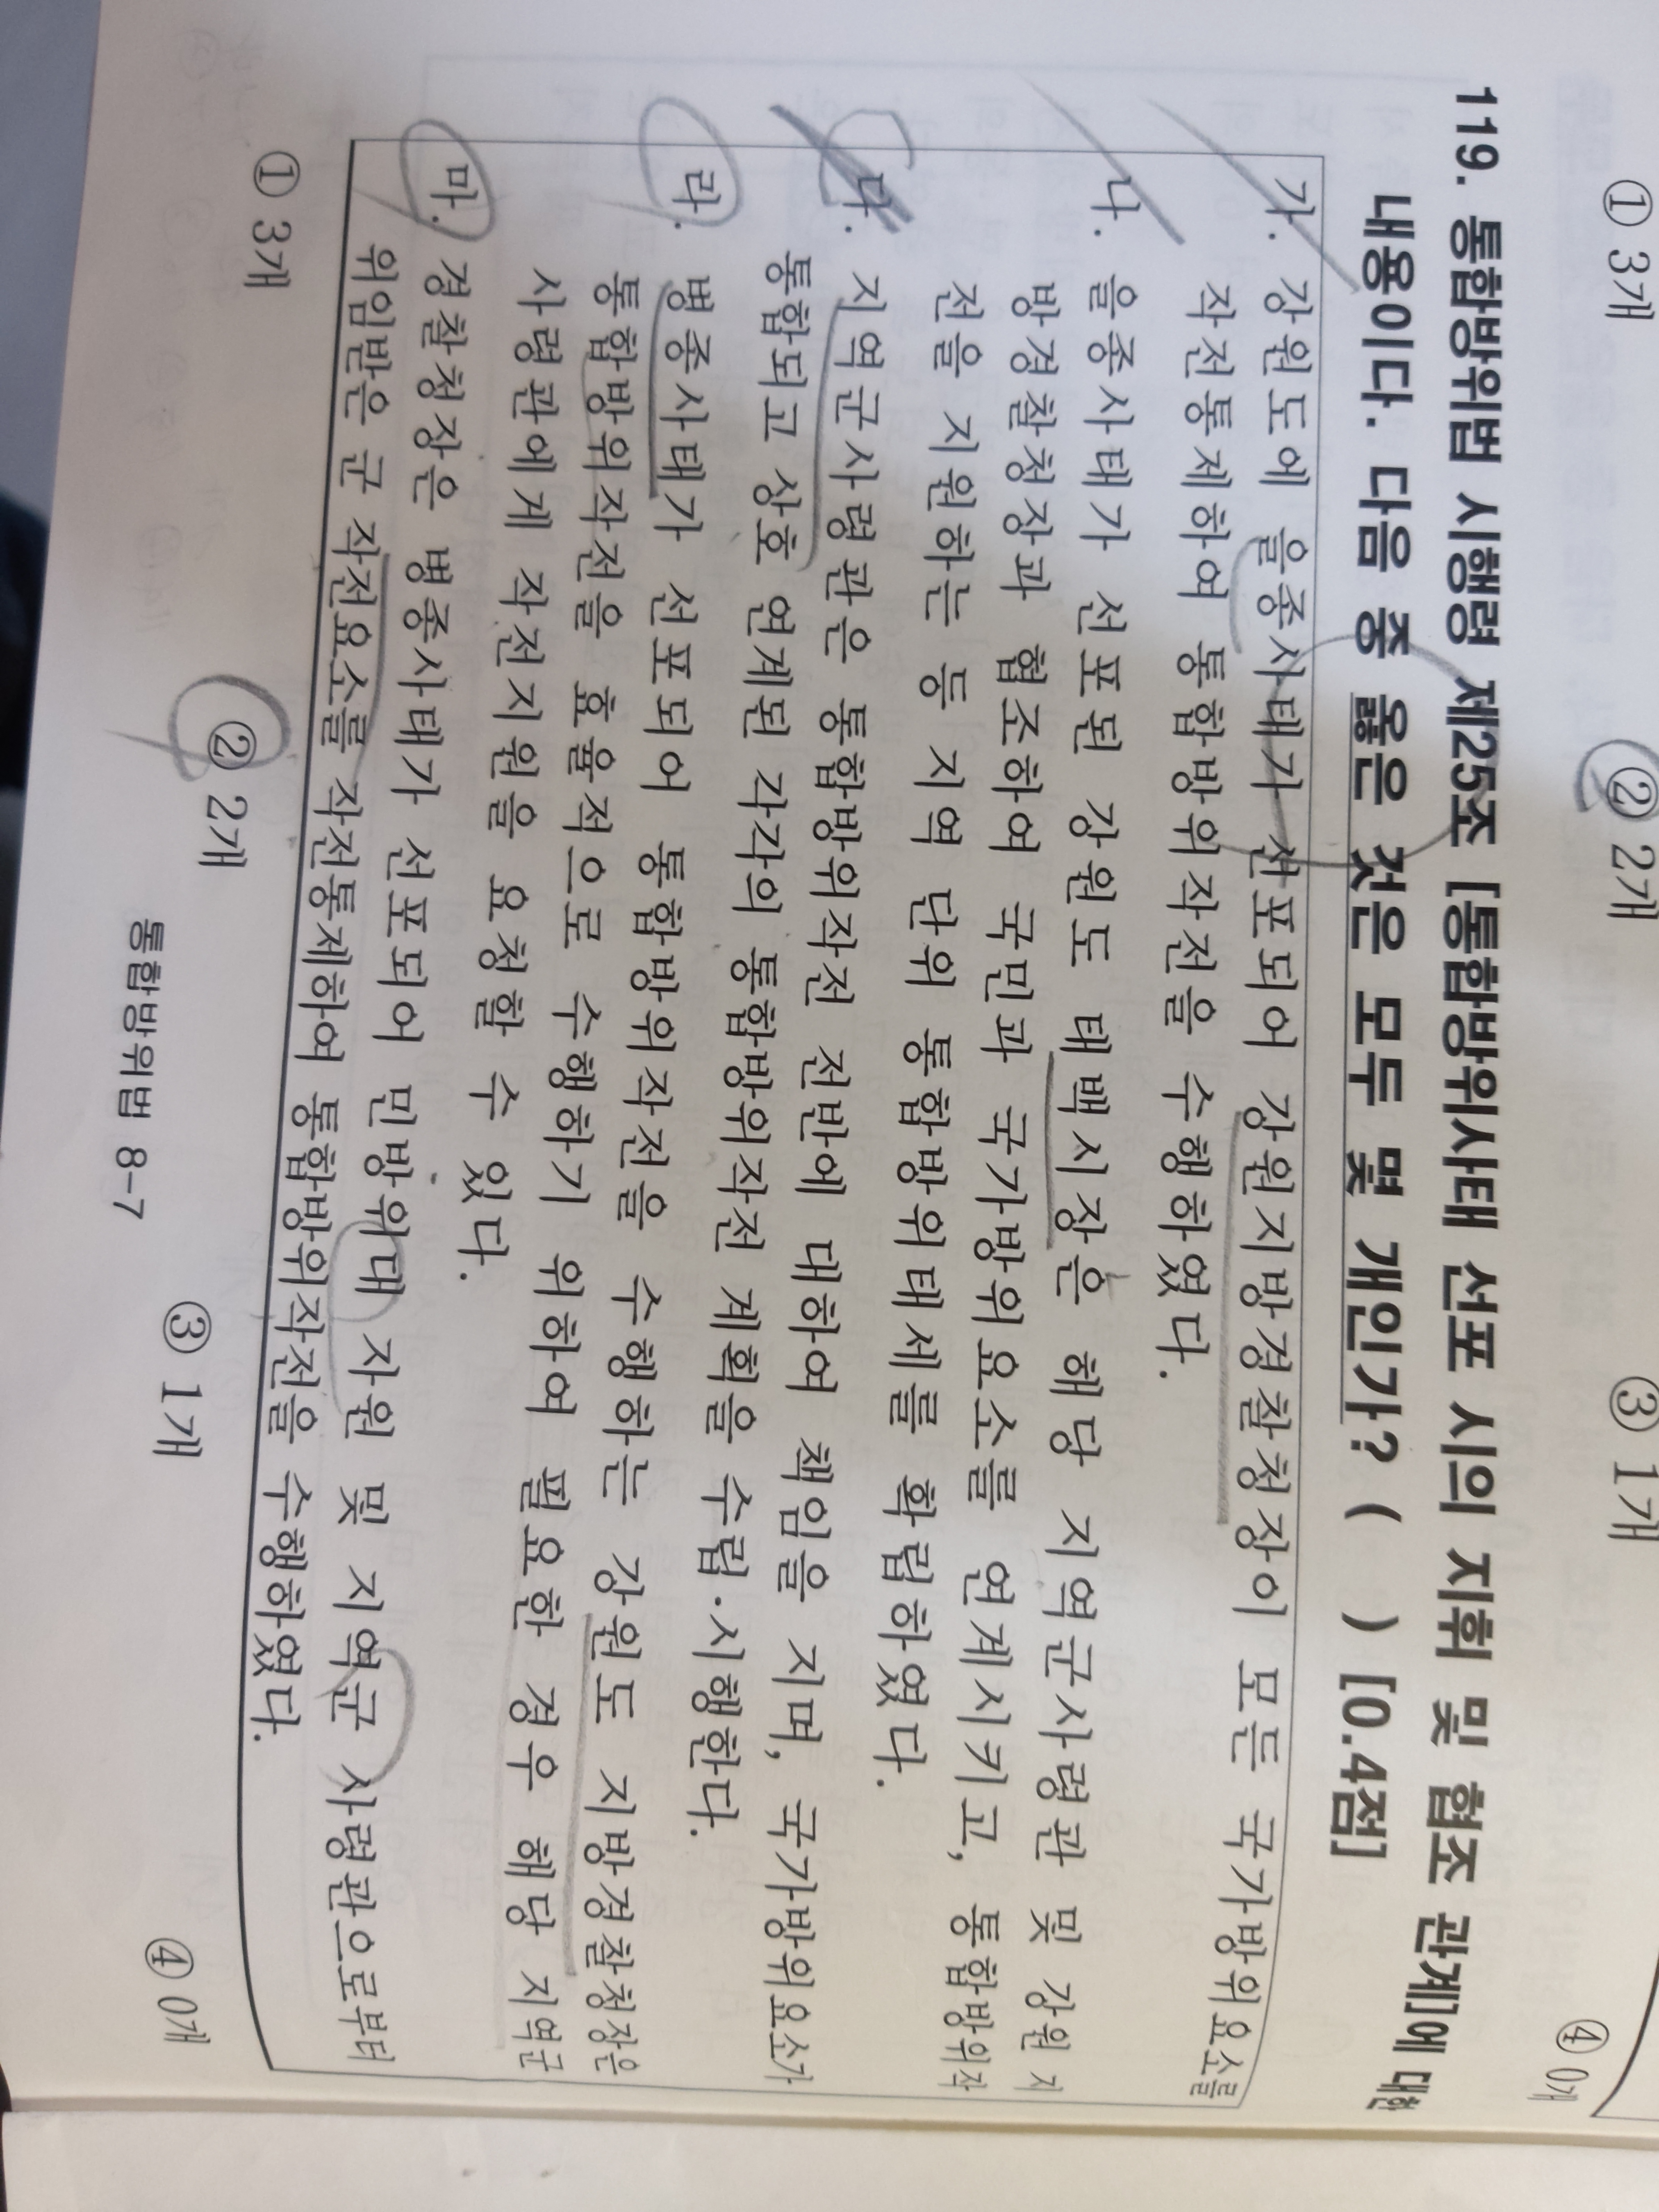 ① 3개 ② 2개 ③ 1개 ④ 0개
119. 통합방위법 시행령 제25조 [통합방위사태 선포 시의 지휘 및 협조 관계]에 대한
내용이다. 다음 중 옳은 것은 모두 몇 개인가? ( ) [0.4점]
가. 강원도에 을종사태가 선포되어 강원지방경찰청장이 모든 국가방위요소를
작전통제하여 통합방위작전을 수행하였다.
나. 을종사태가 선포된 강원도 태백시장은 해당 지역군사령관 및 강원 지
방경찰청장과 협조하여 국민과 국가방위요소를 연계시키고, 통합방위작
전을 지원하는 등 지역 단위 통합방위태세를 확립하였다.
다. 지역군사령관은 통합방위작전 전반에 대하여 책임을 지며, 국가방위요소가
통합되고 상호 연계된 각각의 통합방위작전 계획을 수립·시행한다.
라. 병종사태가 선포되어 통합방위작전을 수행하는 강원도 지방경찰청장은
통합방위작전을 효율적으로 수행하기 위하여 필요한 경우 해당 지역군
사령관에게 작전지원을 요청할 수 있다.
마. 경찰청장은 병종사태가 선포되어 민방위대 자원 및 지역군 사령관으로부터
위임받은 군 작전요소를 작전통제하여 통합방위작전을 수행하였다.
① 3개 ② 2개 ③ 1개 ④ 0개
통합방위법 8-7